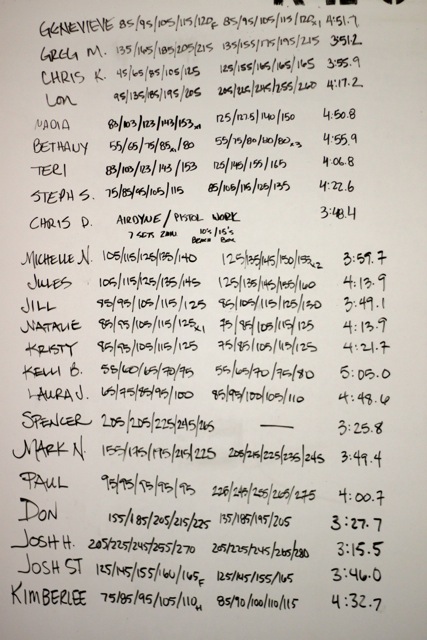 GENEVIEVE 85/95/105/115/120F 85/95/105/115/120x1 4:51.7
GREG M. 135/165/185/205/215 135/155/175/195/215 3:51.2
CHRIS K. 45/65/85/105/125 125/155/165/165/165 3:55.9
LON 95/135/185/195/205 205/225/245/255/260 4:17.2
NADIA 83/103/123/143/153x1 125/127.5/140/150 4:50.8
BETHANY 55/65/75/85x1/80 55/75/80/80/80x3 4:55.9
TERI 83/103/123/143/153 125/145/155/165 4:06.8
STEPH S. 75/85/95/105/115 85/105/115/125/135 4:22.6
CHRIS D. AIRDYNE / PISTOL WORK 3:48.4
7 SETS 2MIN 10's/15's
BOX
MICHELLE N. 105/115/125/135/140 125/135/145/150/155x2 3:59.7
JULES 105/115/125/135/145 125/135/145/155/160 4:13.9
JILL 85/95/105/115/125 85/105/115/125/130 3:49.1
NATALIE 85/95/105/115/125x1 75/85/105/115/125 4:13.9
KRISTY 85/95/105/115/125 75/85/105/115/125 4:21.7
KELLI B. 55/60/65/70/75 55/65/70/75/80 5:05.0
LAURA J. 65/75/85/95/100 85/95/100/105/110 4:48.6
SPENCER 205/205/225/245/265 — 3:25.8
MARK N. 155/175/195/215/225 205/215/225/235/245 3:49.4
PAUL 95/95/95/95/95 225/245/255/265/275 4:00.7
DON 155/185/205/215/225 135/185/195/205 3:27.7
JOSH H. 205/225/245/255/270 205/225/245/265/280 3:15.5
JOSH ST 125/145/155/160/165F 125/145/155/165 3:46.0
KIMBERLEE 75/85/95/105/110H 85/90/100/110/115 4:32.7